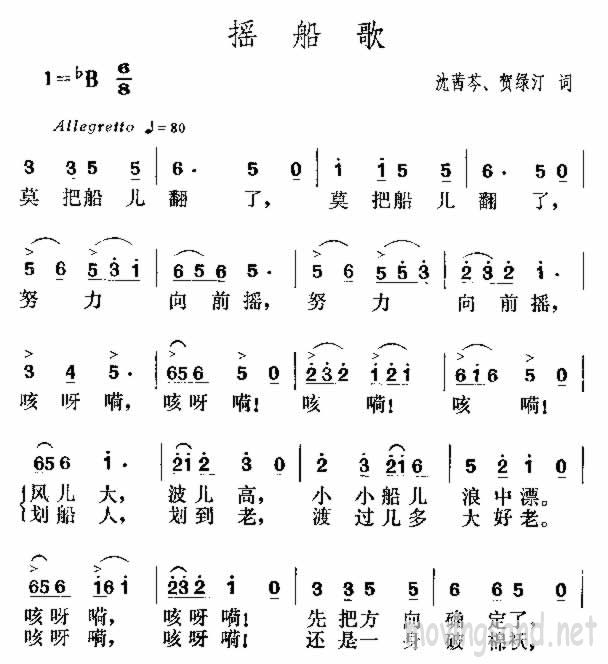 摇船歌
1=♭B 6/8
沈茜芩、贺绿汀 词
Allegretto ♩=80
3 3 5 5 6· 5 0 1 1 5 5 5 6· 5 0
莫把船儿翻了， 莫把船儿翻了，
5 6 5 3 1 6 5 6 5· 5 6 5 5 3 2 3 2 1·
努力 向前摇， 努力 向前摇，
3 4 5· 656 5 0 232 121 616 5 0
咳呀嗬， 咳呀嗬！ 咳 嗬！ 咳 嗬！
65 6 1· 21 2 3 0 2 3 216 5 2 1 0
风儿大， 波儿高， 小小船儿 浪中漂。
划船人， 划到老， 渡过几多 大好老。
656 161 232 1 0 3 3 5 5 6 6 5 0
咳呀嗬， 咳呀嗬！ 先把方向 确定了，
咳呀嗬， 咳呀嗬！ 还是一身 破棉袄，